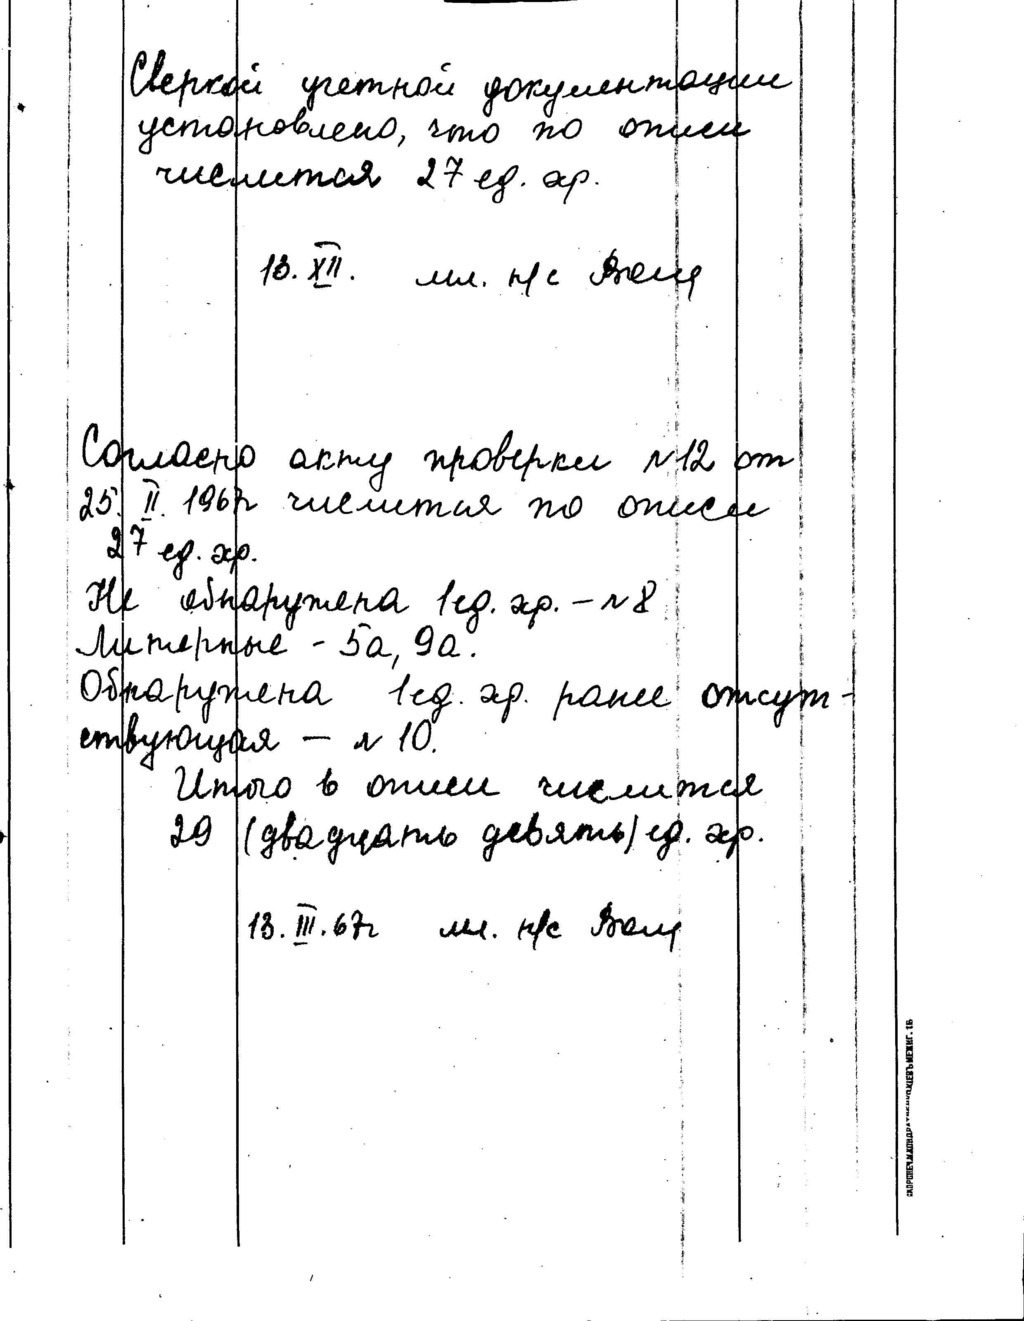 Сверкой учетной документации
установлено, что по описи
числится 27 ед. хр.
13. XII. мл. н/с
Согласно акту проверки №12 от
25. II. 1967г числится по описи
27 ед. хр.
Не обнаружена 1 ед. хр. – №8
Литерные - 5а, 9а.
Обнаружена 1 ед. хр. ранее отсут-
ствующая – №10.
Итого в описи числится
29 (двадцать девять) ед. хр.
13. III. 67г мл. н/с